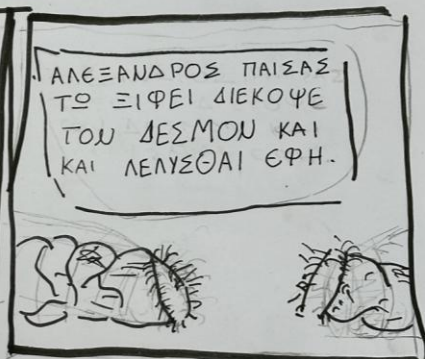 ΑΛΕΞΑΝΔΡΟΣ ΠΑΙΣΑΣ
ΤΩ ΞΙΦΕΙ ΔΙΕΚΟΨΕ
ΤΟΝ ΔΕΣΜΟΝ ΚΑΙ
ΚΑΙ ΛΕΛΥΣΘΑΙ ΕΦΗ.